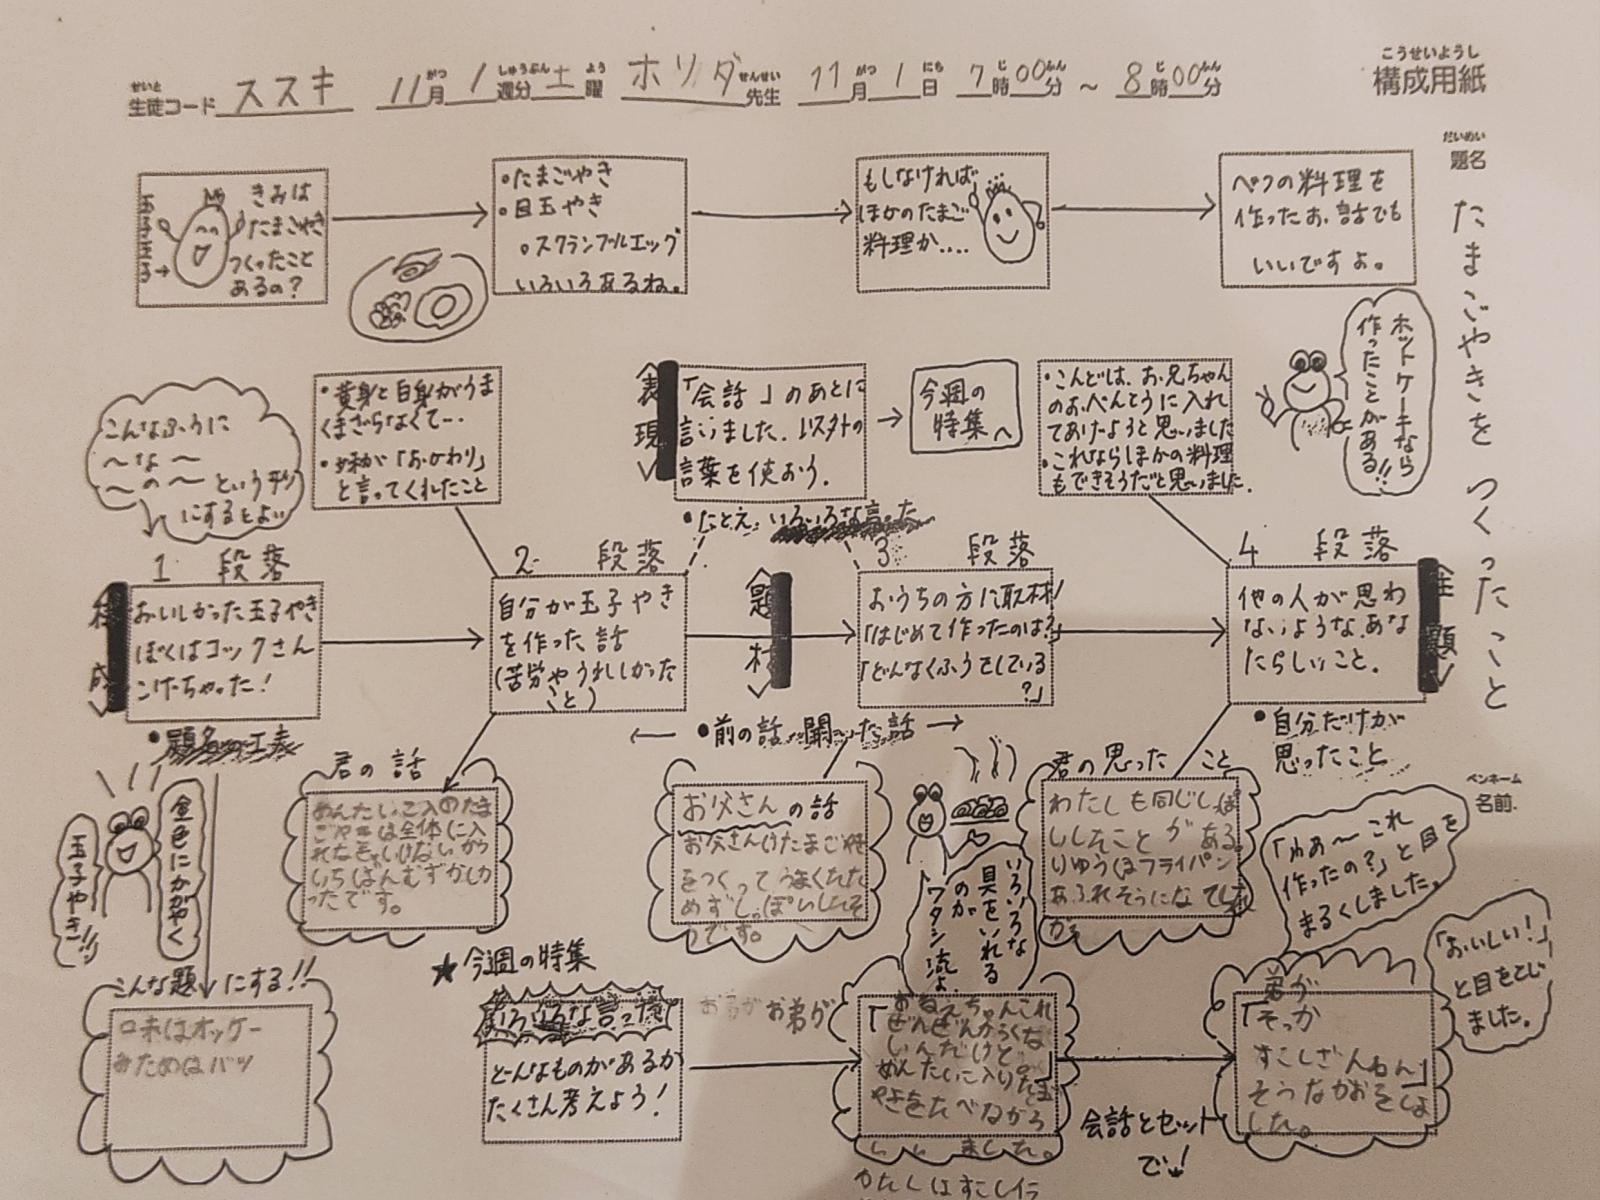 せいと
生徒コード ススキ 11月 1週分 土曜 ホリダ先生 11月1日 7時00分 ～ 8時00分
こうせいようし
構成用紙
だいめい
題名
たまごやきをつくったこと
玉子王子→
きみは
たまごやき
つくったこと
あるの?
・たまごやき
・目玉やき
・スクランブルエッグ
いろいろあるね。
もしなければ
ほかのたまご
料理か....
べつの料理を
作ったお話でも
いいですよ。
ホットケーキなら
作ったことがある!!
こんなふうに
〜な〜
〜の〜という形
にするとよい
・黄身と白身がうま
くまざらなくて…
・妹が「おかわり」
と言ってくれたこと
表現
「会話」のあとに
言いました。以外の
言葉を使おう。
今週の
特集へ
・こんどは、お兄ちゃん
のおべんとうに入れ
てあげようと思いました
・これならほかの料理
もできそうだと思いました。
・たとえ
1 段落
構成
おいしかった玉子やき
ぼくはコックさん
こげちゃった!
2 段落
自分が玉子やき
を作った話
(苦労やうれしかった
こと)
題材
3 段落
おうちの方に取材!
「はじめて作ったのは?」
「どんなくふうをしている
?」
4 段落
他の人が思わ
ないようなあな
たらしいこと。
主題
・題名の工夫
← ・前の話 聞いた話 →
・自分だけが
思ったこと
ペンネーム
名前.
金色にかがやく
玉子やき!!
君の話
めんたいこ入のたま
ごやきは全体に入
れなきゃいけないから
いちばんむずかしか
ったです。
お父さんの話
お父さんはたまごやき
をつくってうまくたた
めずしっぱいしたそ
うです。
いろいろな
具をいれる
のが
ワタシ流よ
君の思ったこと
わたしも同じしっぱ
いしたことがある。
りゆうはフライパン
あふれそうになてしまた
から
「わあ〜これ
作ったの?」と目を
まるくしました。
「おいしい!」
と目をとじ
ました。
こんな題にする!!
口未はオッケー
みためはバツ
★今週の特集
いろいろな言った
どんなものがあるか
たくさん考えよう!
お弟が
「おねえちゃんこれ
ぜんぜんからくな
いんだけど。」
めんたいこ入りたま
やきをたべながら
いいました。
わたしはすこし
会話とセット
で!
弟が
「そっか
すこしざんねん」
そうなかおをしま
した。